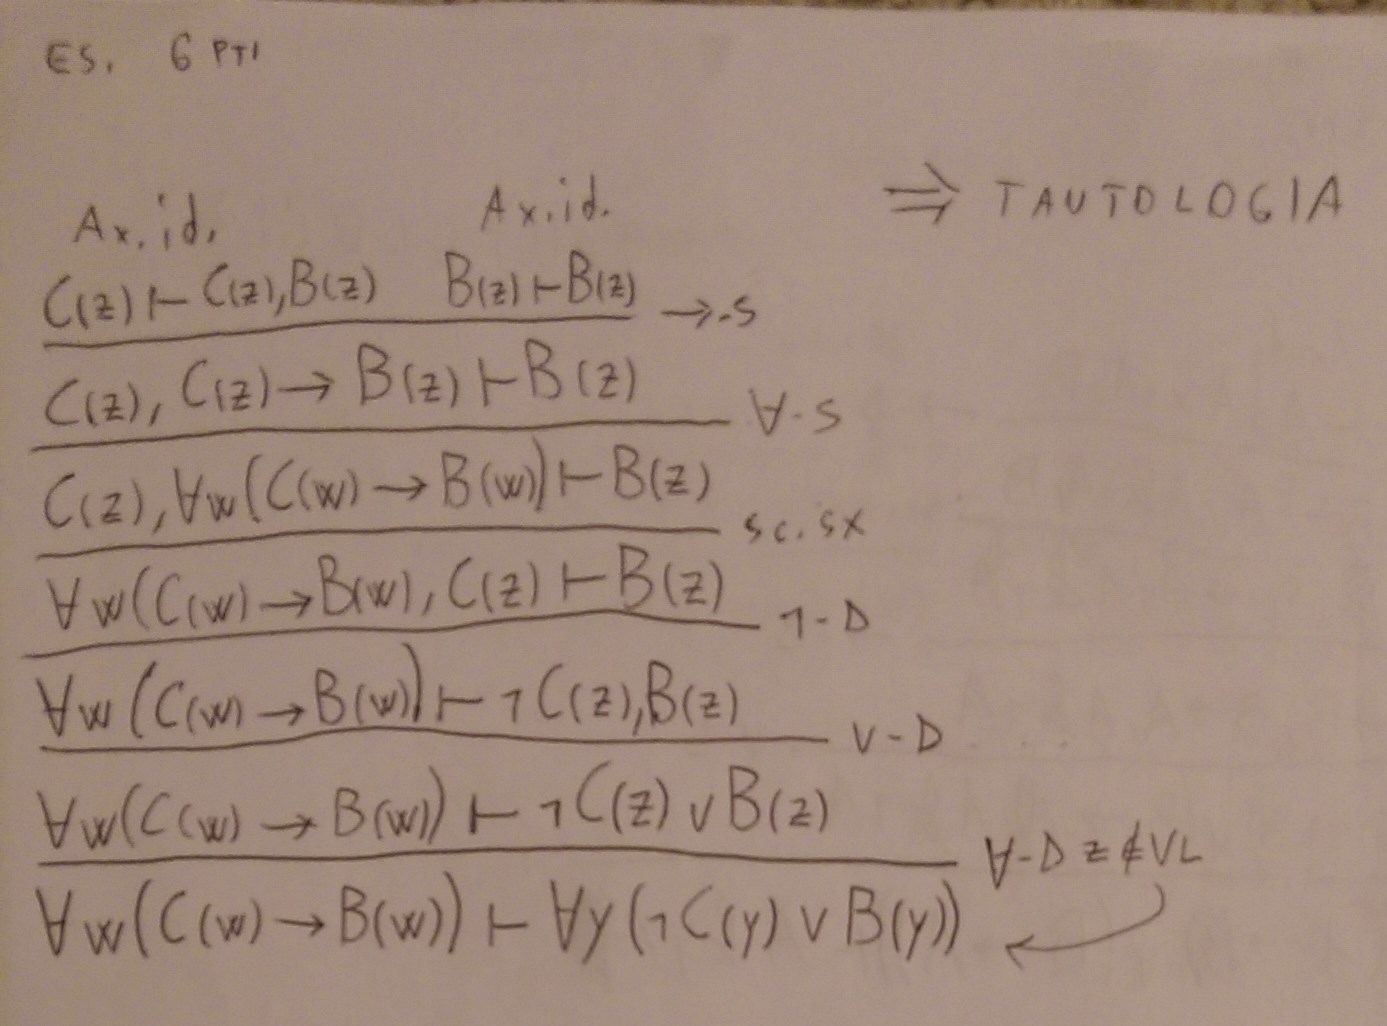 ES. 6 PTI
⇒ TAUTOLOGIA
Ax. id. Ax. id.
C(z) ⊢ C(z), B(z) B(z) ⊢ B(z) →-S
C(z), C(z) → B(z) ⊢ B(z) ∀-S
C(z), ∀w(C(w) → B(w)) ⊢ B(z) sc. sx
∀w(C(w) → B(w), C(z) ⊢ B(z) ¬-D
∀w(C(w) → B(w)) ⊢ ¬C(z), B(z) ∨-D
∀w(C(w) → B(w)) ⊢ ¬C(z) ∨ B(z) ∀-D z ∉ VL
∀w(C(w) → B(w)) ⊢ ∀y(¬C(y) ∨ B(y))